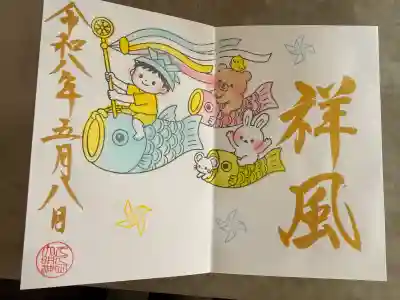 祥風
令和八年五月八日